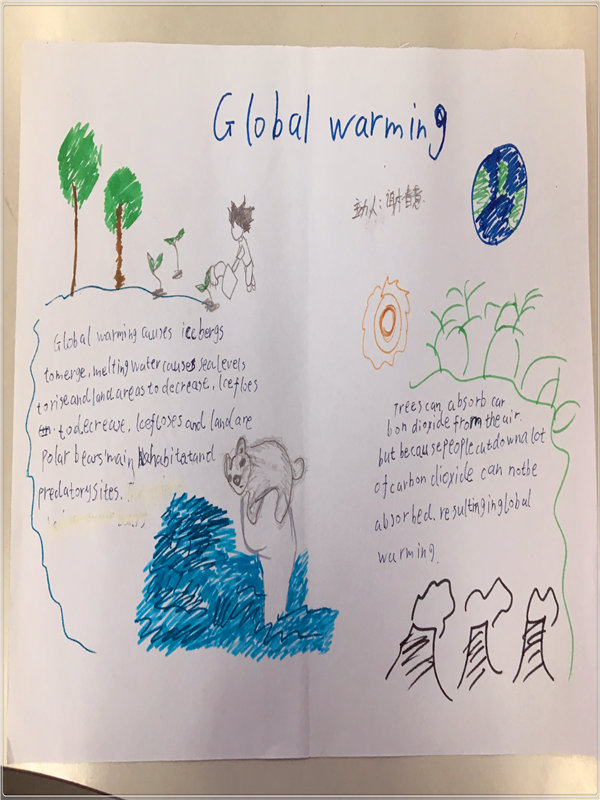 Global warming
主办人:谢睿
Global warming causes icebergs
to merge, melting water causes sea levels
to rise and land areas to decrease, Icefloes
to decrease, Icefloses and land are
Polar bears' main habitat and
predatory sites.
Trees can absorb car
bon dioxide from the air.
but because people cut down a lot
of carbon dioxide can not be
absorbed. resulting in global
warming.